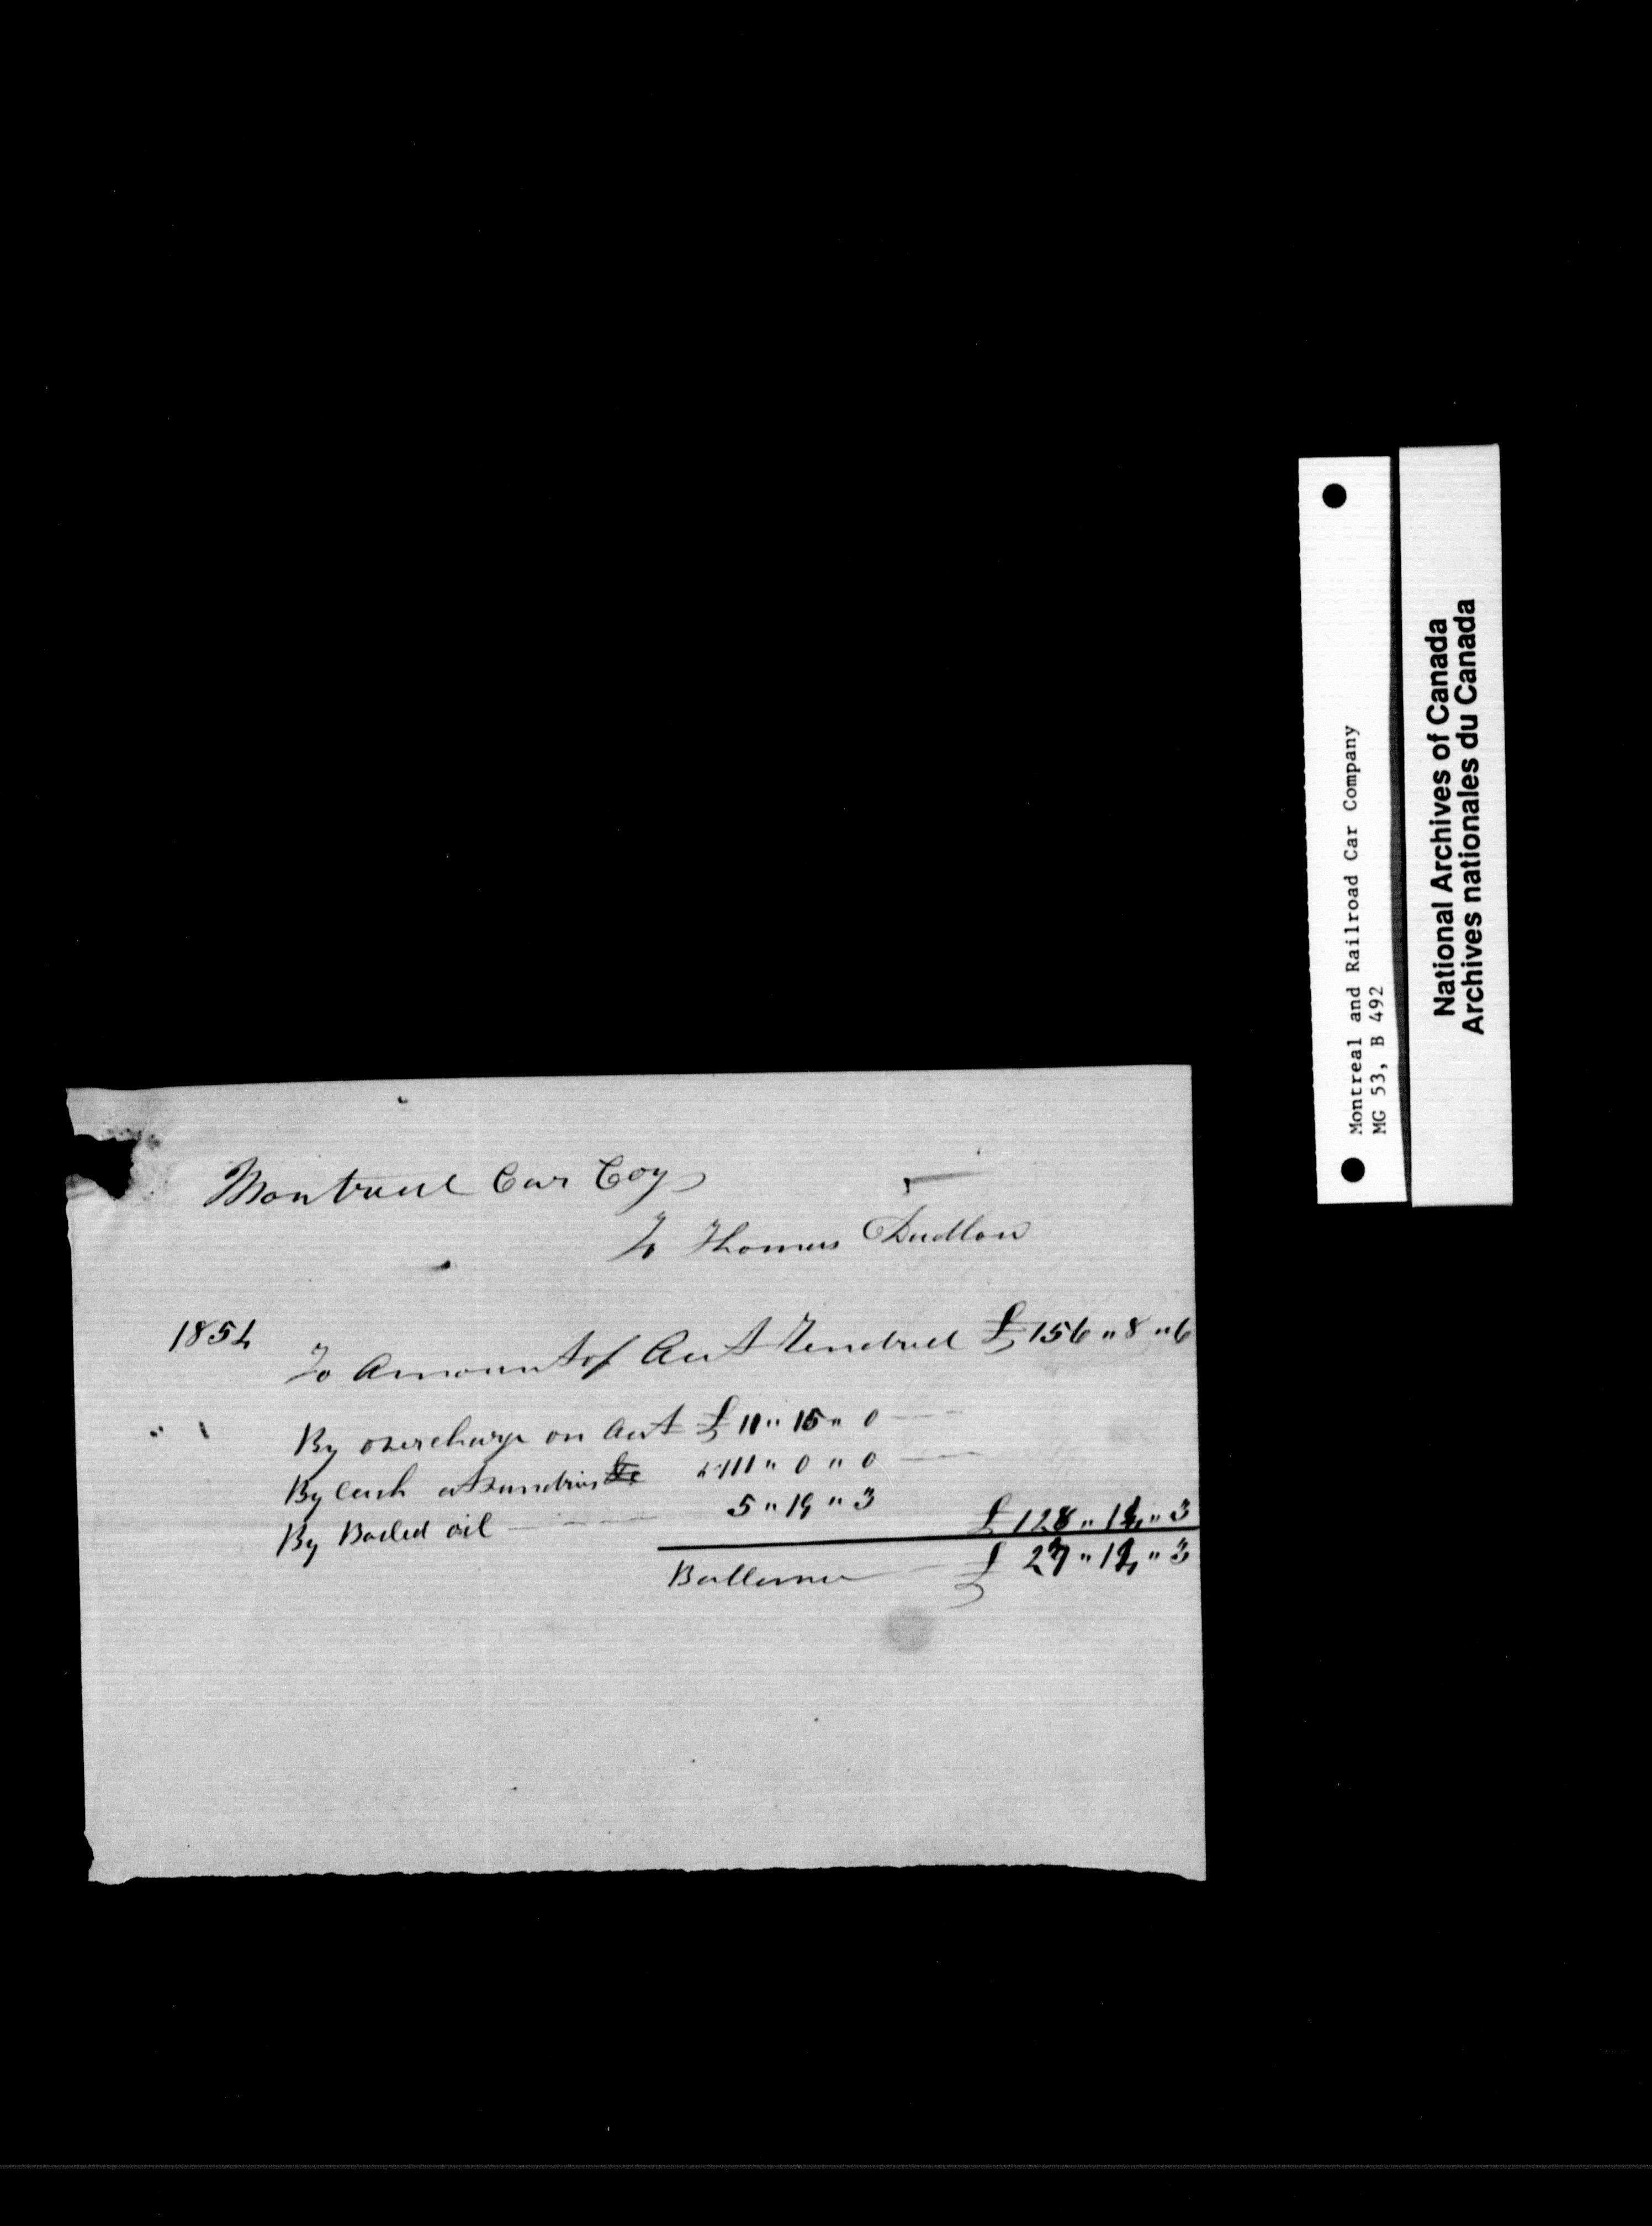 Montreal Car Coy
To Thomas Dudlow
1854
To Amount of Acct Rendred £156 " 8 " 6
By overcharge on Acct £ 11 " 15 " 0
By Cash at sundries " 111 " 0 " 0
By Boiled oil 5 " 19 " 3
£ 128 " 14 " 3
Ballance £ 27 " 14 " 3
Montreal and Railroad Car Company
MG 53, B 492
National Archives of Canada
Archives nationales du Canada